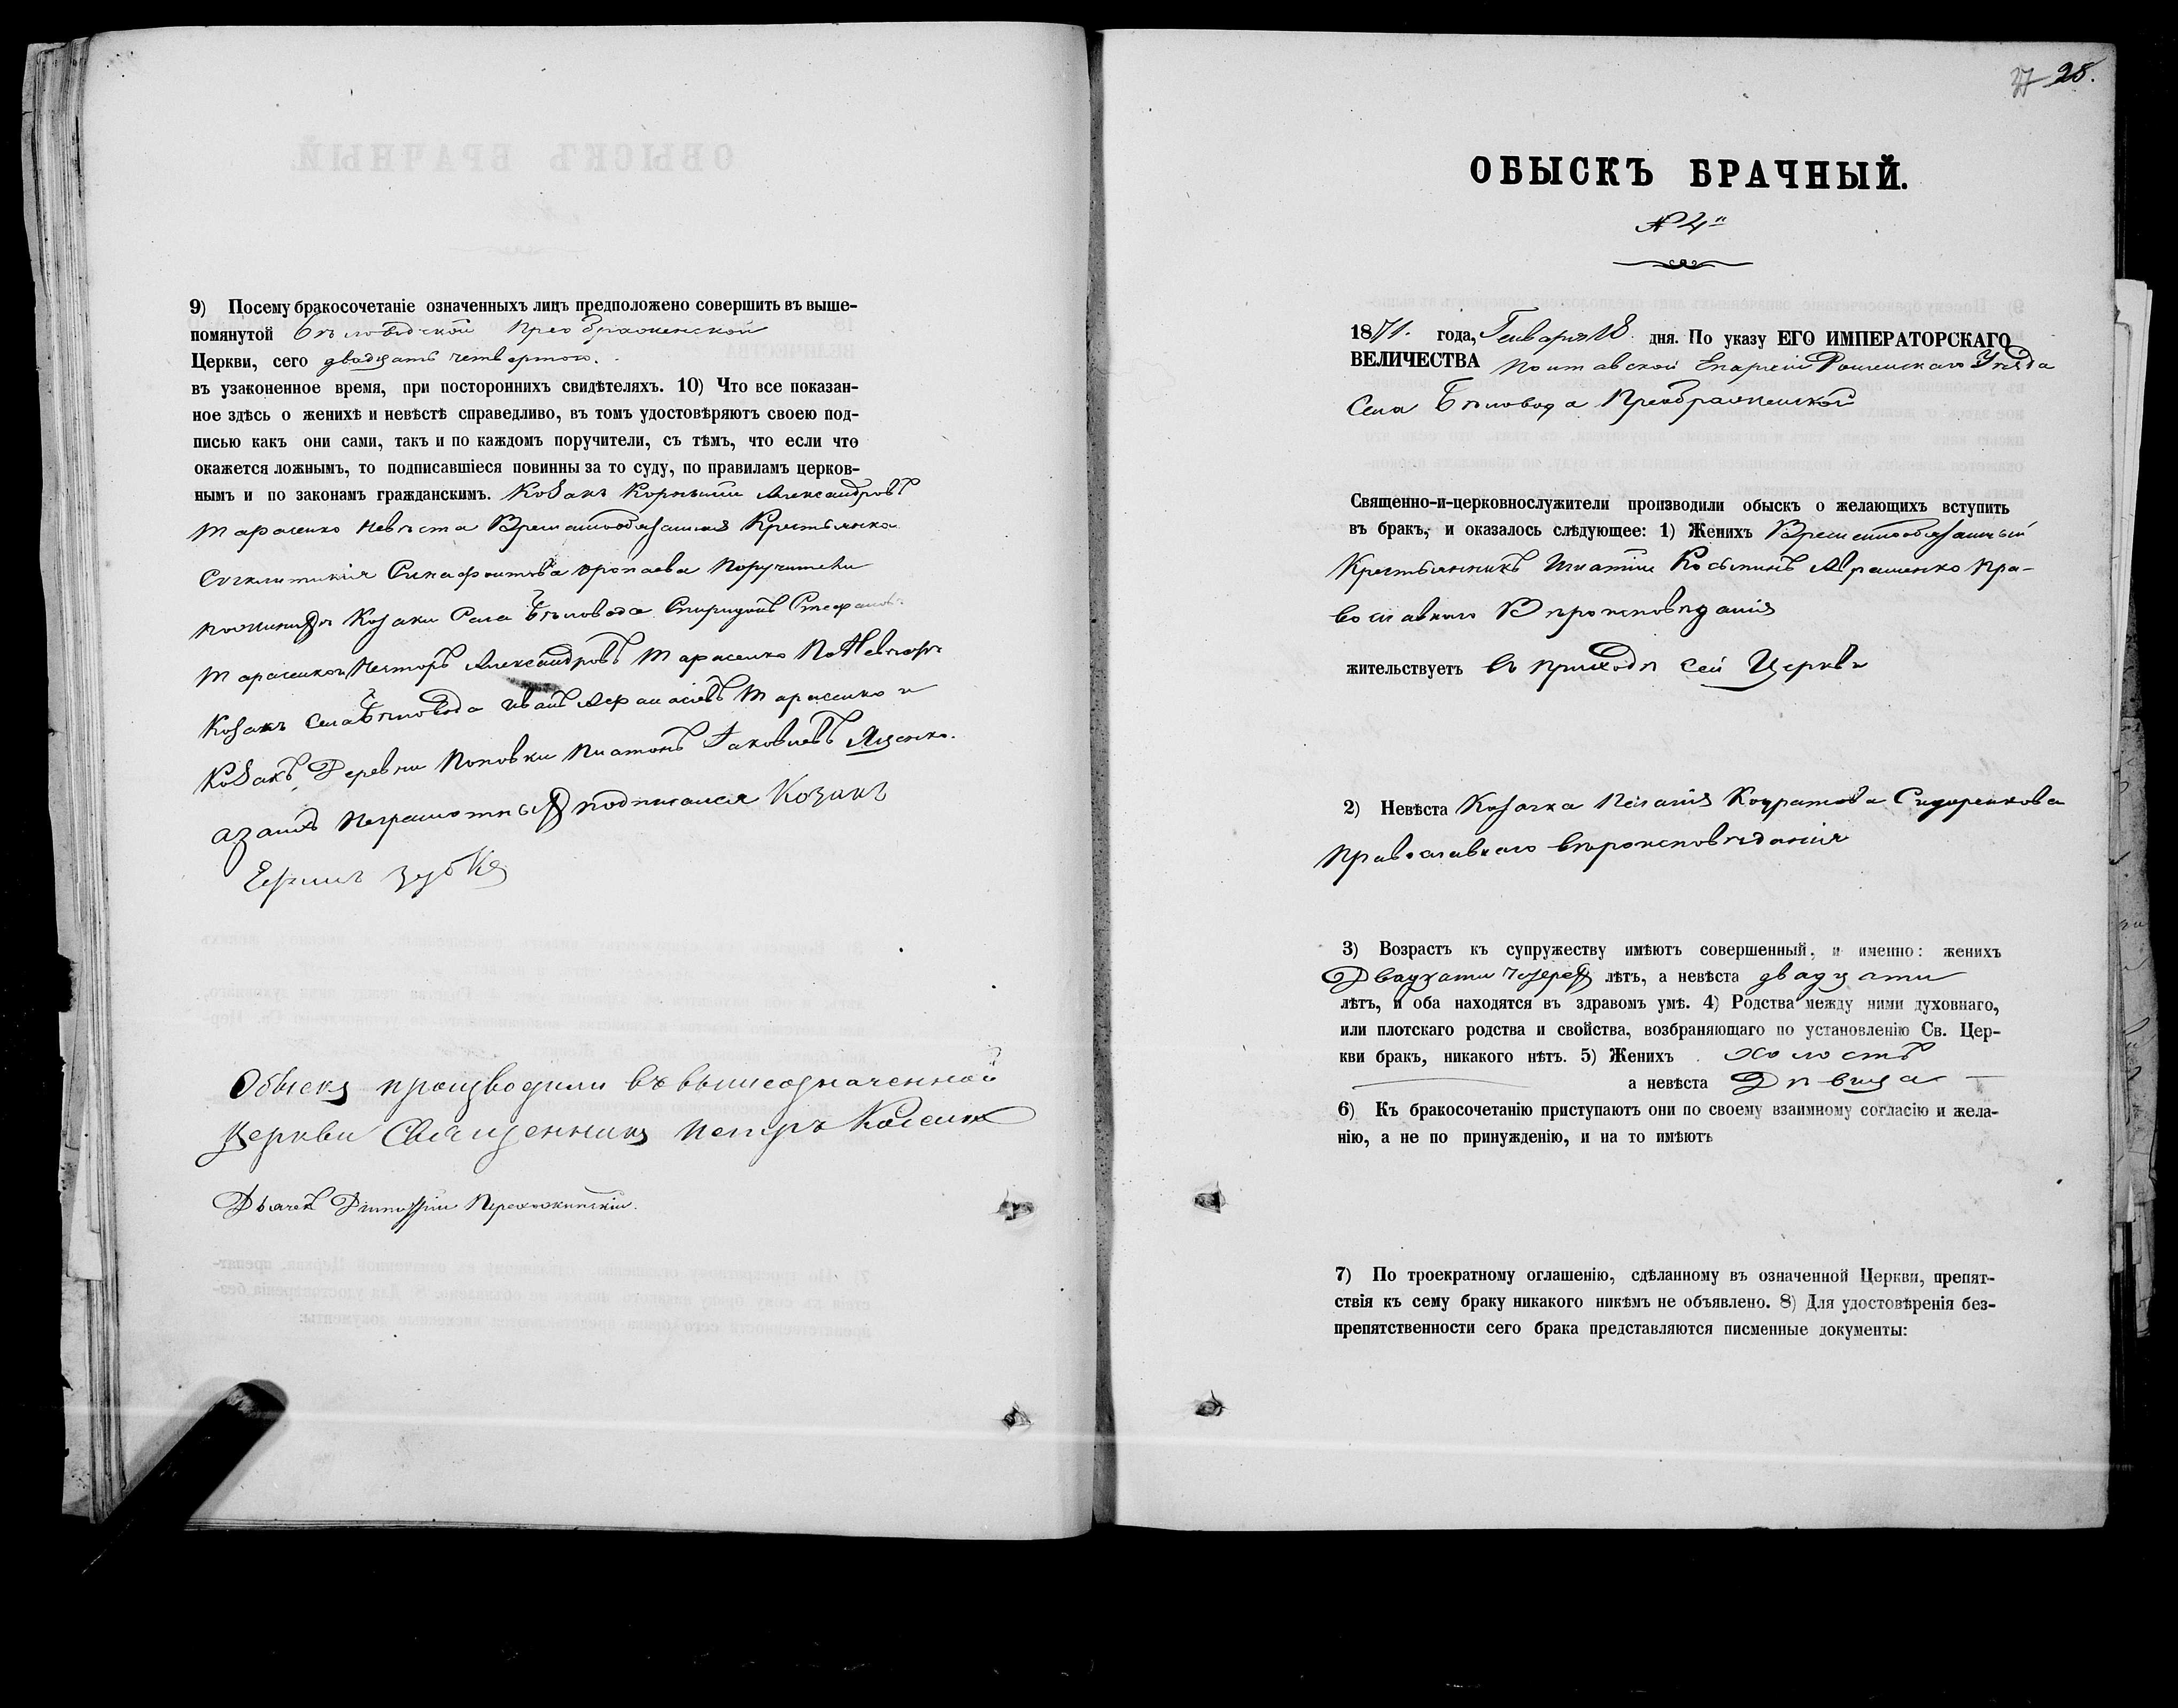 9) Посему бракосочетаніе означенныхъ лицъ предположено совершить въ выше-
помянутой Бѣловодской Преображенской
Церкви, сего двадцать четвертого.
въ узаконенное время, при постороннихъ свидѣтеляхъ. 10) Что все показан-
ное здѣсь о женихѣ и невѣстѣ справедливо, въ томъ удостовѣряютъ своею под-
писью какъ они сами, такъ и по каждомъ поручители, съ тѣмъ, что если что
окажется ложнымъ, то подписавшіеся повинны за то суду, по правиламъ церков-
нымъ и по законамъ гражданскимъ. Козакъ Корнилій Александровъ
Тарасенко Невѣста Временнообязанная Крестьянка
Поручители
Козаки Села Бѣловода Спиридонъ Стефановъ
Тарасенко и Несторъ Александровъ Тарасенко По Невѣстѣ
Козакъ Села Бѣловода Иванъ Афанасіевъ Тарасенко и
Козакъ Деревни Поповки Платонъ Іаковлевъ Яценко.
азанихъ неграмотныхъ подписался Козакъ
Ефимъ Зубко
Обыскъ производили въ вышеозначенной
Церкви Священникъ Петръ
Дьячекъ
28.
ОБЫСКЪ БРАЧНЫЙ.
№ 4
1871. года, Генваря 18 дня. По указу ЕГО ИМПЕРАТОРСКАГО
ВЕЛИЧЕСТВА Полтавской Епархіи Роменскаго Уѣзда
Села Бѣловода Преображенской
Священно-и-церковнослужители производили обыскъ о желающихъ вступить
въ бракъ, и оказалось слѣдующее: 1) Женихъ Временнообязанный
Крестьянинъ Игнатій Авраменко Пра-
вославного Вѣроисповѣданія
жительствуетъ въ приходѣ сей Церкви
2) Невѣста Козачка Пелагія Кондратова Сидоренкова
Православного вѣроисповѣданія
3) Возрастъ къ супружеству имѣютъ совершенный, и именно: женихъ
Двадцати лѣтъ, а невѣста двадцати
лѣтъ, и оба находятся въ здравомъ умѣ. 4) Родства между ними духовнаго,
или плотскаго родства и свойства, возбраняющаго по установленію Св. Цер-
кви бракъ, никакого нѣтъ. 5) Женихъ холостъ
а невѣста Дѣвица
6) Къ бракосочетанію приступаютъ они по своему взаимному согласію и жела-
нію, а не по принужденію, и на то имѣютъ
7) По троекратному оглашенію, сдѣланному въ означенной Церкви, препят-
ствія къ сему браку никакого никѣмъ не объявлено. 8) Для удостовѣренія без-
препятственности сего брака представляются писменные документы: